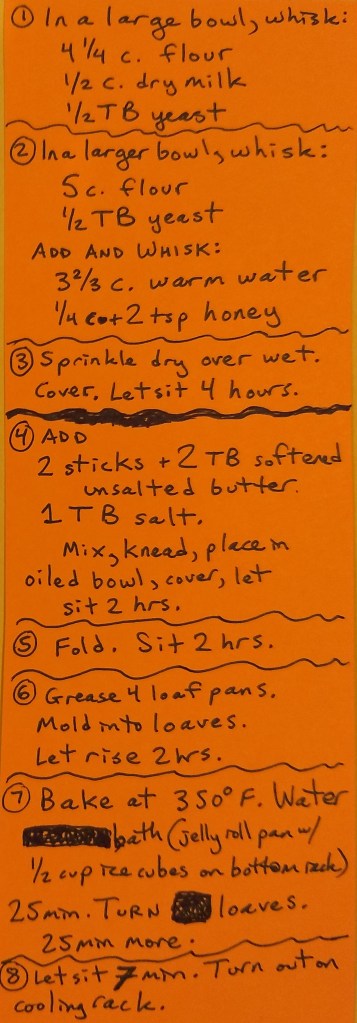 ① In a large bowl, whisk:
4 1/4 c. flour
1/2 c. dry milk
1/2 TB yeast
② In a larger bowl, whisk:
5 c. flour
1/2 TB yeast
ADD AND WHISK:
3 2/3 c. warm water
1/4 c + 2 tsp honey
③ Sprinkle dry over wet.
Cover. Let sit 4 hours.
④ ADD
2 sticks + 2 TB softened
unsalted butter.
1 TB salt.
Mix, knead, place in
oiled bowl, cover, let
sit 2 hrs.
⑤ Fold. Sit 2 hrs.
⑥ Grease 4 loaf pans.
Mold into loaves.
Let rise 2 hrs.
⑦ Bake at 350° F. Water
bath (jelly roll pan w/
1/2 cup ice cubes on bottom rack)
25 min. TURN loaves.
25 min more.
⑧ Let sit 7 min. Turn out on
cooling rack.